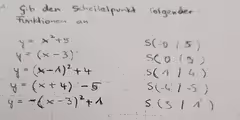 Gib den Scheitelpunkt folgender
Funktionen an
y = x² + 5 S(0 | 5)
y = (x - 3)² S(0 | 5)
y = (x - 1)² + 4 S(1 | 4)
y = (x + 4)² - 5 S(-4 | -5)
y = -(x - 3)² + 1 S(3 | 1)